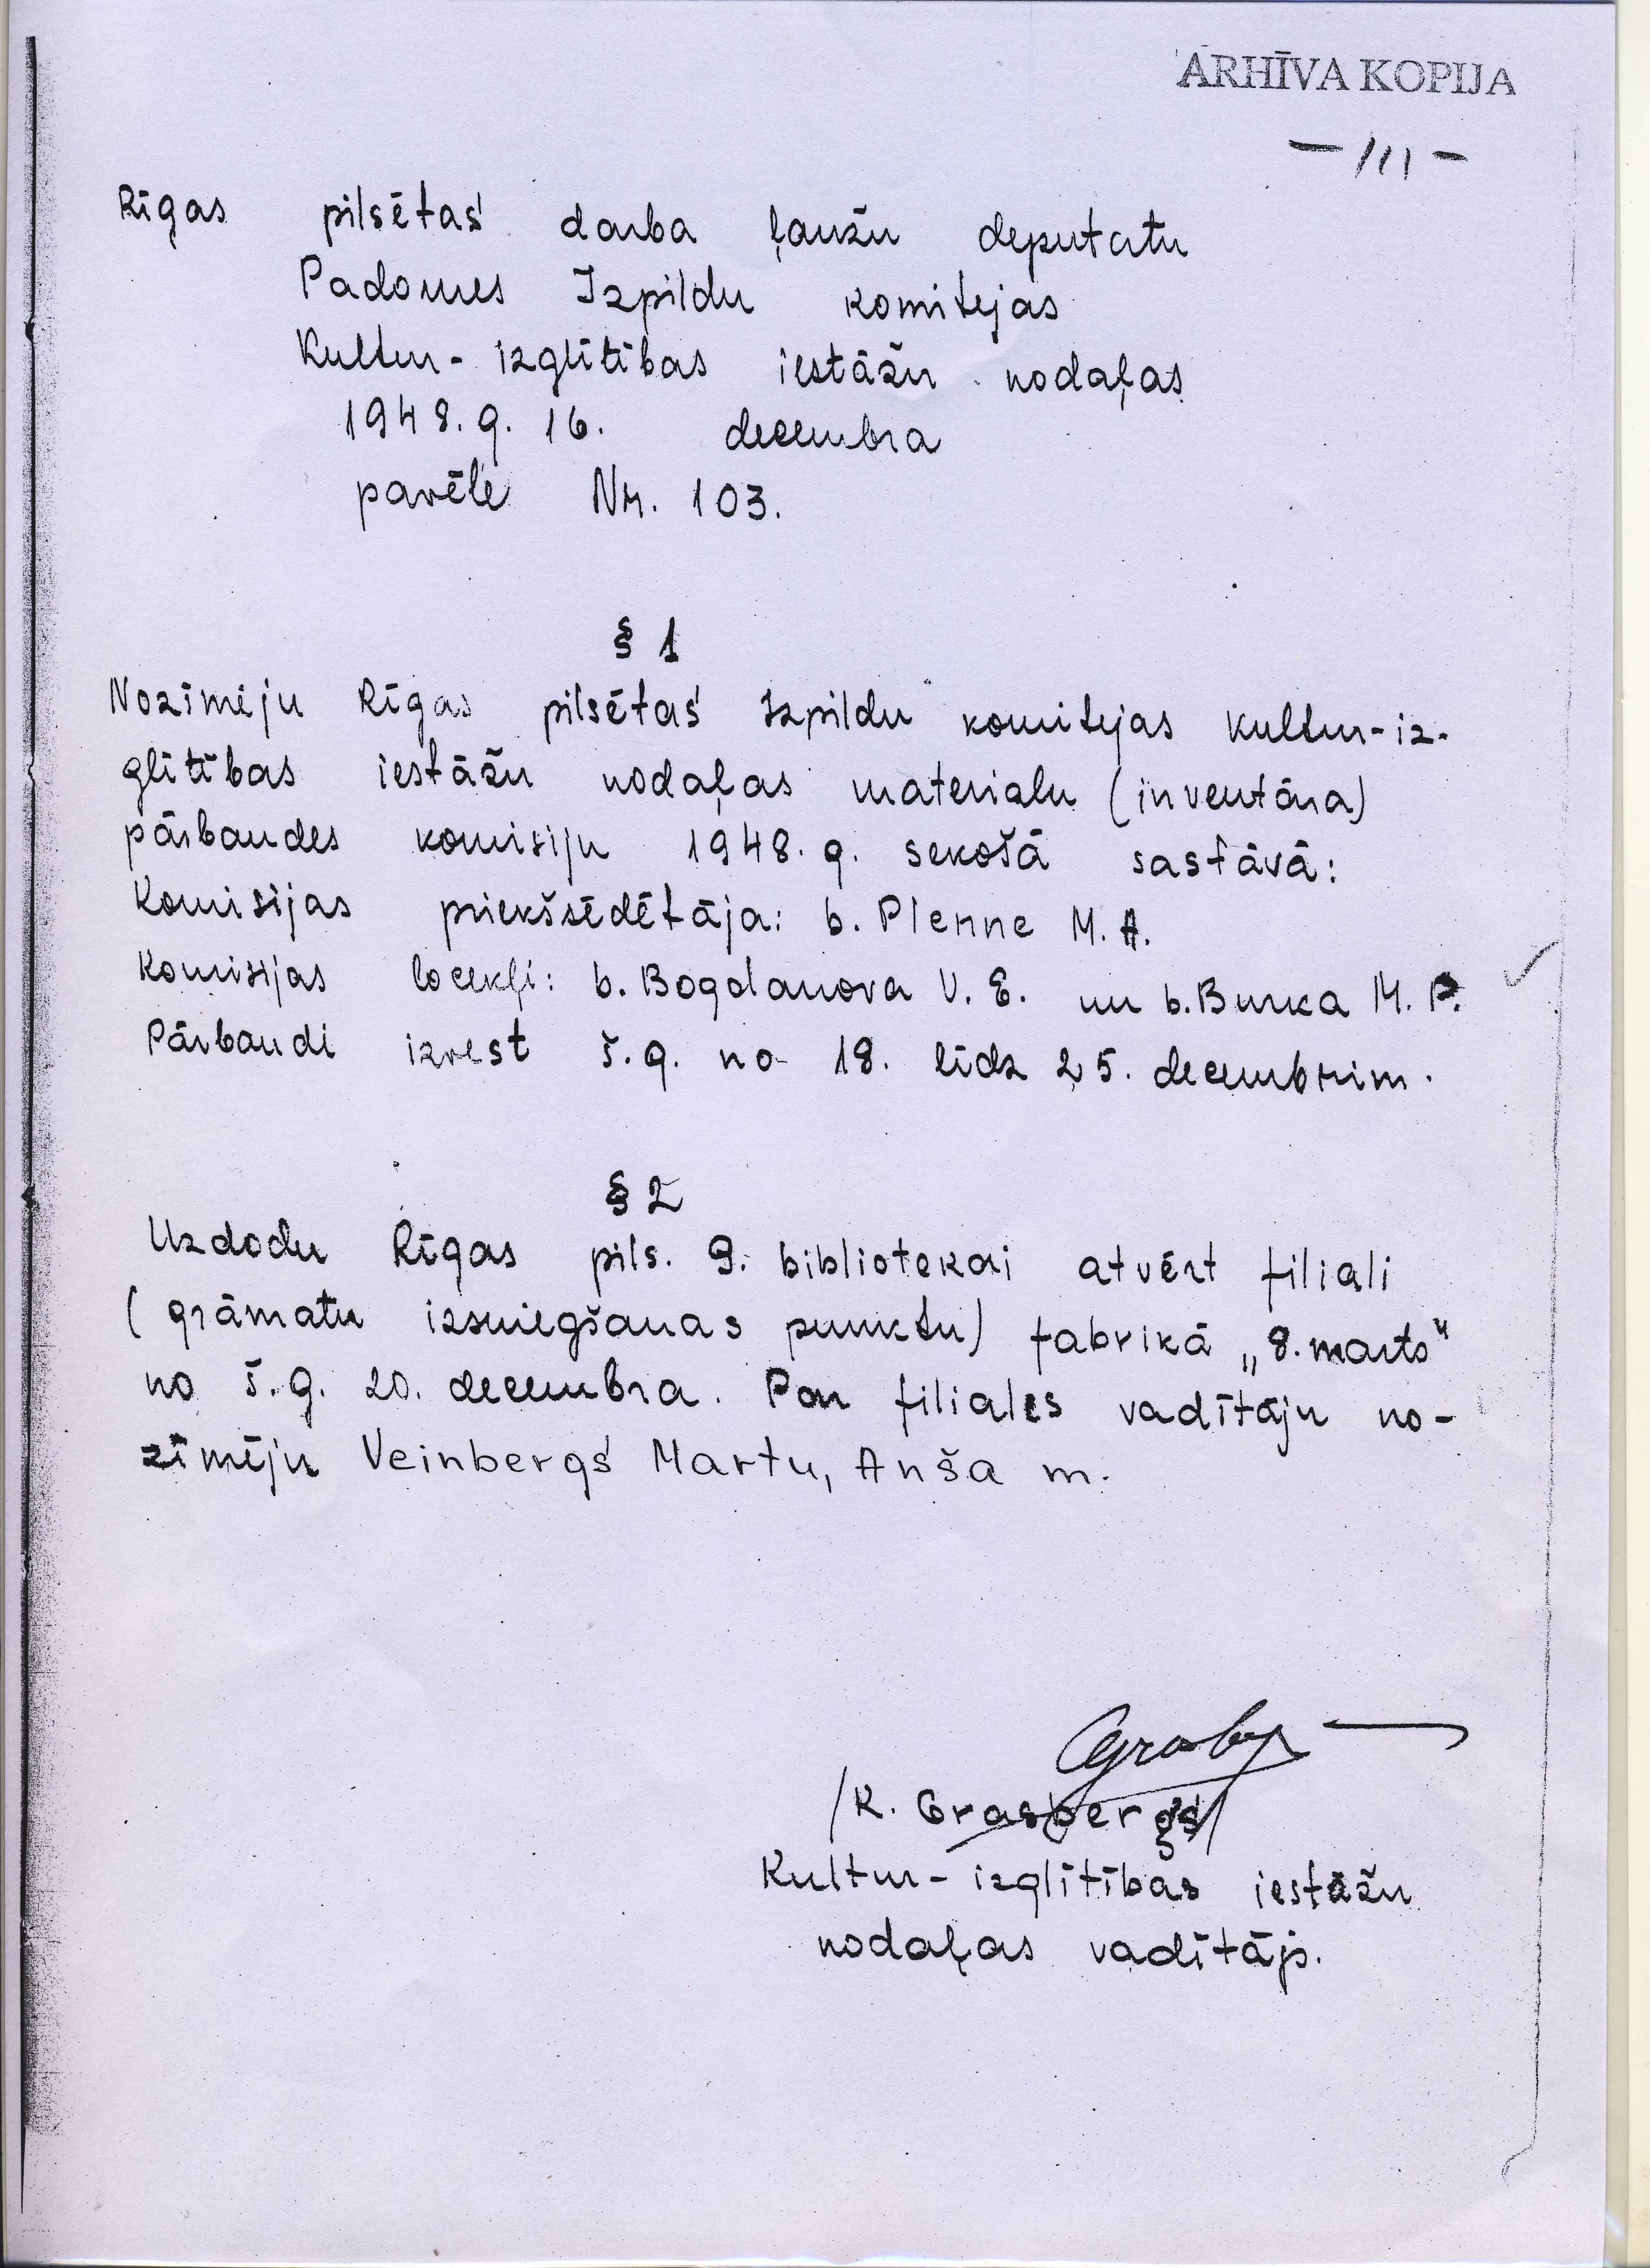 ARHĪVA KOPIJA
- 111 -
Rīgas pilsētas darba ļaužu deputatu
Padomes Izpildu komitejas
Kultur- izglītības iestāžu nodaļas
1948. g. 16. decembra
pavēle Nr. 103.
§ 1
Nozīmēju Rīgas pilsētas Izpildu komitejas kultur-iz-
glītības iestāžu nodaļas materialu (inventāra)
pārbaudes komisiju 1948. g. sekošā sastāvā:
Komisijas priekšsēdētāja: b. Plenne M. A.
Komisijas locekļi: b. Bogdanova V. E. un b. Burka M. P.
Pārbaudi izvest š. g. no 18. līdz 25. decembrim.
§ 2
Uzdodu Rīgas pils. 9. bibliotekai atvērt filiali
(grāmatu izsniegšanas punktu) fabrikā „8. marts"
no š. g. 20. decembra. Par filiales vadītāju no-
zīmēju Veinbergs Martu, Anša m.
/K. Grasbergs/
Kultur- izglītības iestāžu
nodaļas vadītājs.